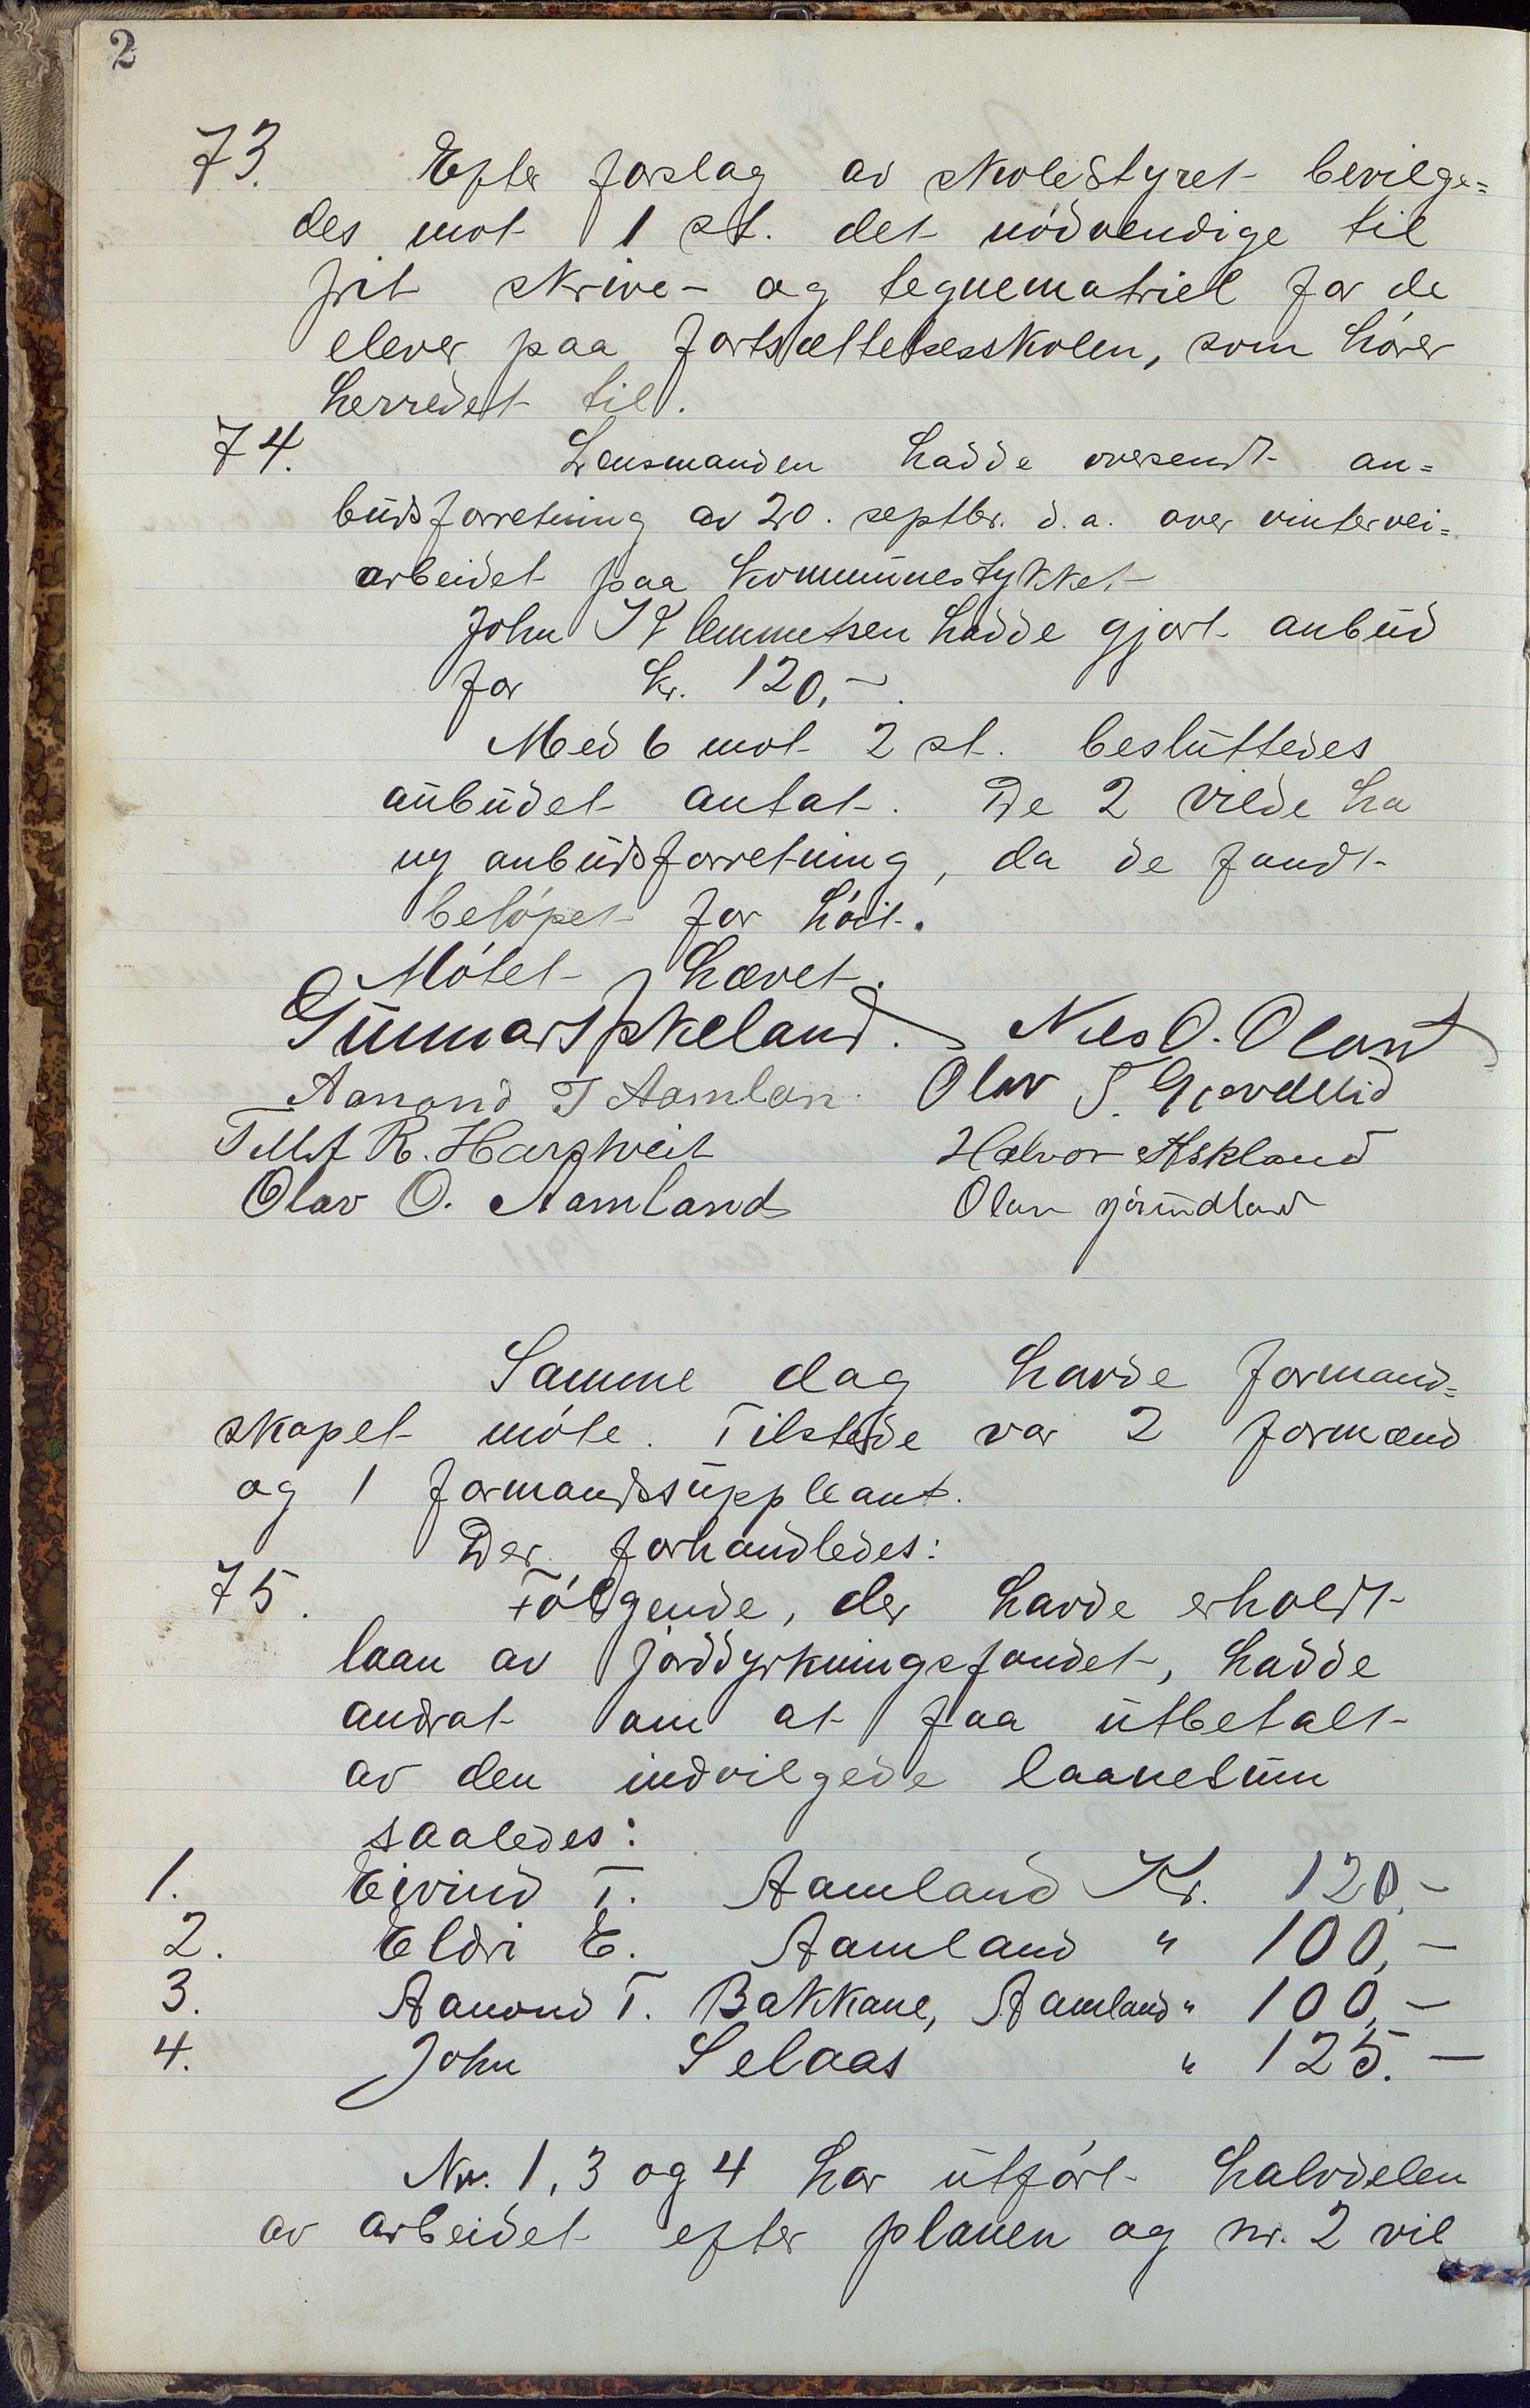 2
73. Efter forslag av skolestyret bevilge=
des mot 1 st. det nödvendige til
frit skrive- og tegnematriel for de
elever paa fortsættelsesskolen, som hörer
herredet til.
74. Lensmanden hadde oversendt an=
budsforretning av 20. septbr. d.a. over vintervei=
arbeidet paa kommunestykket.
John Klemmetsen hadde gjort anbud
for kr. 120,-.
Med 6 mot 2 st. besluttedes
anbudet antat. De 2 vilde ha
ny anbudsforretning, da de fandt
belöpet for höit.
Mötet hævet.
Gunnar Epkeland. Nils O. Oland
Aanond T Aamlan. Olav T.
Tellef R. Harstveit Halvor Askland
Olav O. Aamland Olav
Samme dag havde formand=
skapet möte. Tilstede var 2 formænd
og 1 formandssuppleant.
Der forhandledes:
75. Fölgende, der havde erholdt
laan av jorddyrkningsfondet, hadde
andrat om at faa utbetalt
av den indvilgede laanesum
saaledes:
1. Eivind T. Aamland Kr. 120,-
2. Eldri E. Aamland " 100,-
3. Aanond T. Bakkane, Aamland " 100,-
4. John Selaas " 125.-
Nr. 1, 3 og 4 har utfört halvdelen
av arbeidet efter planen og nr. 2 vil